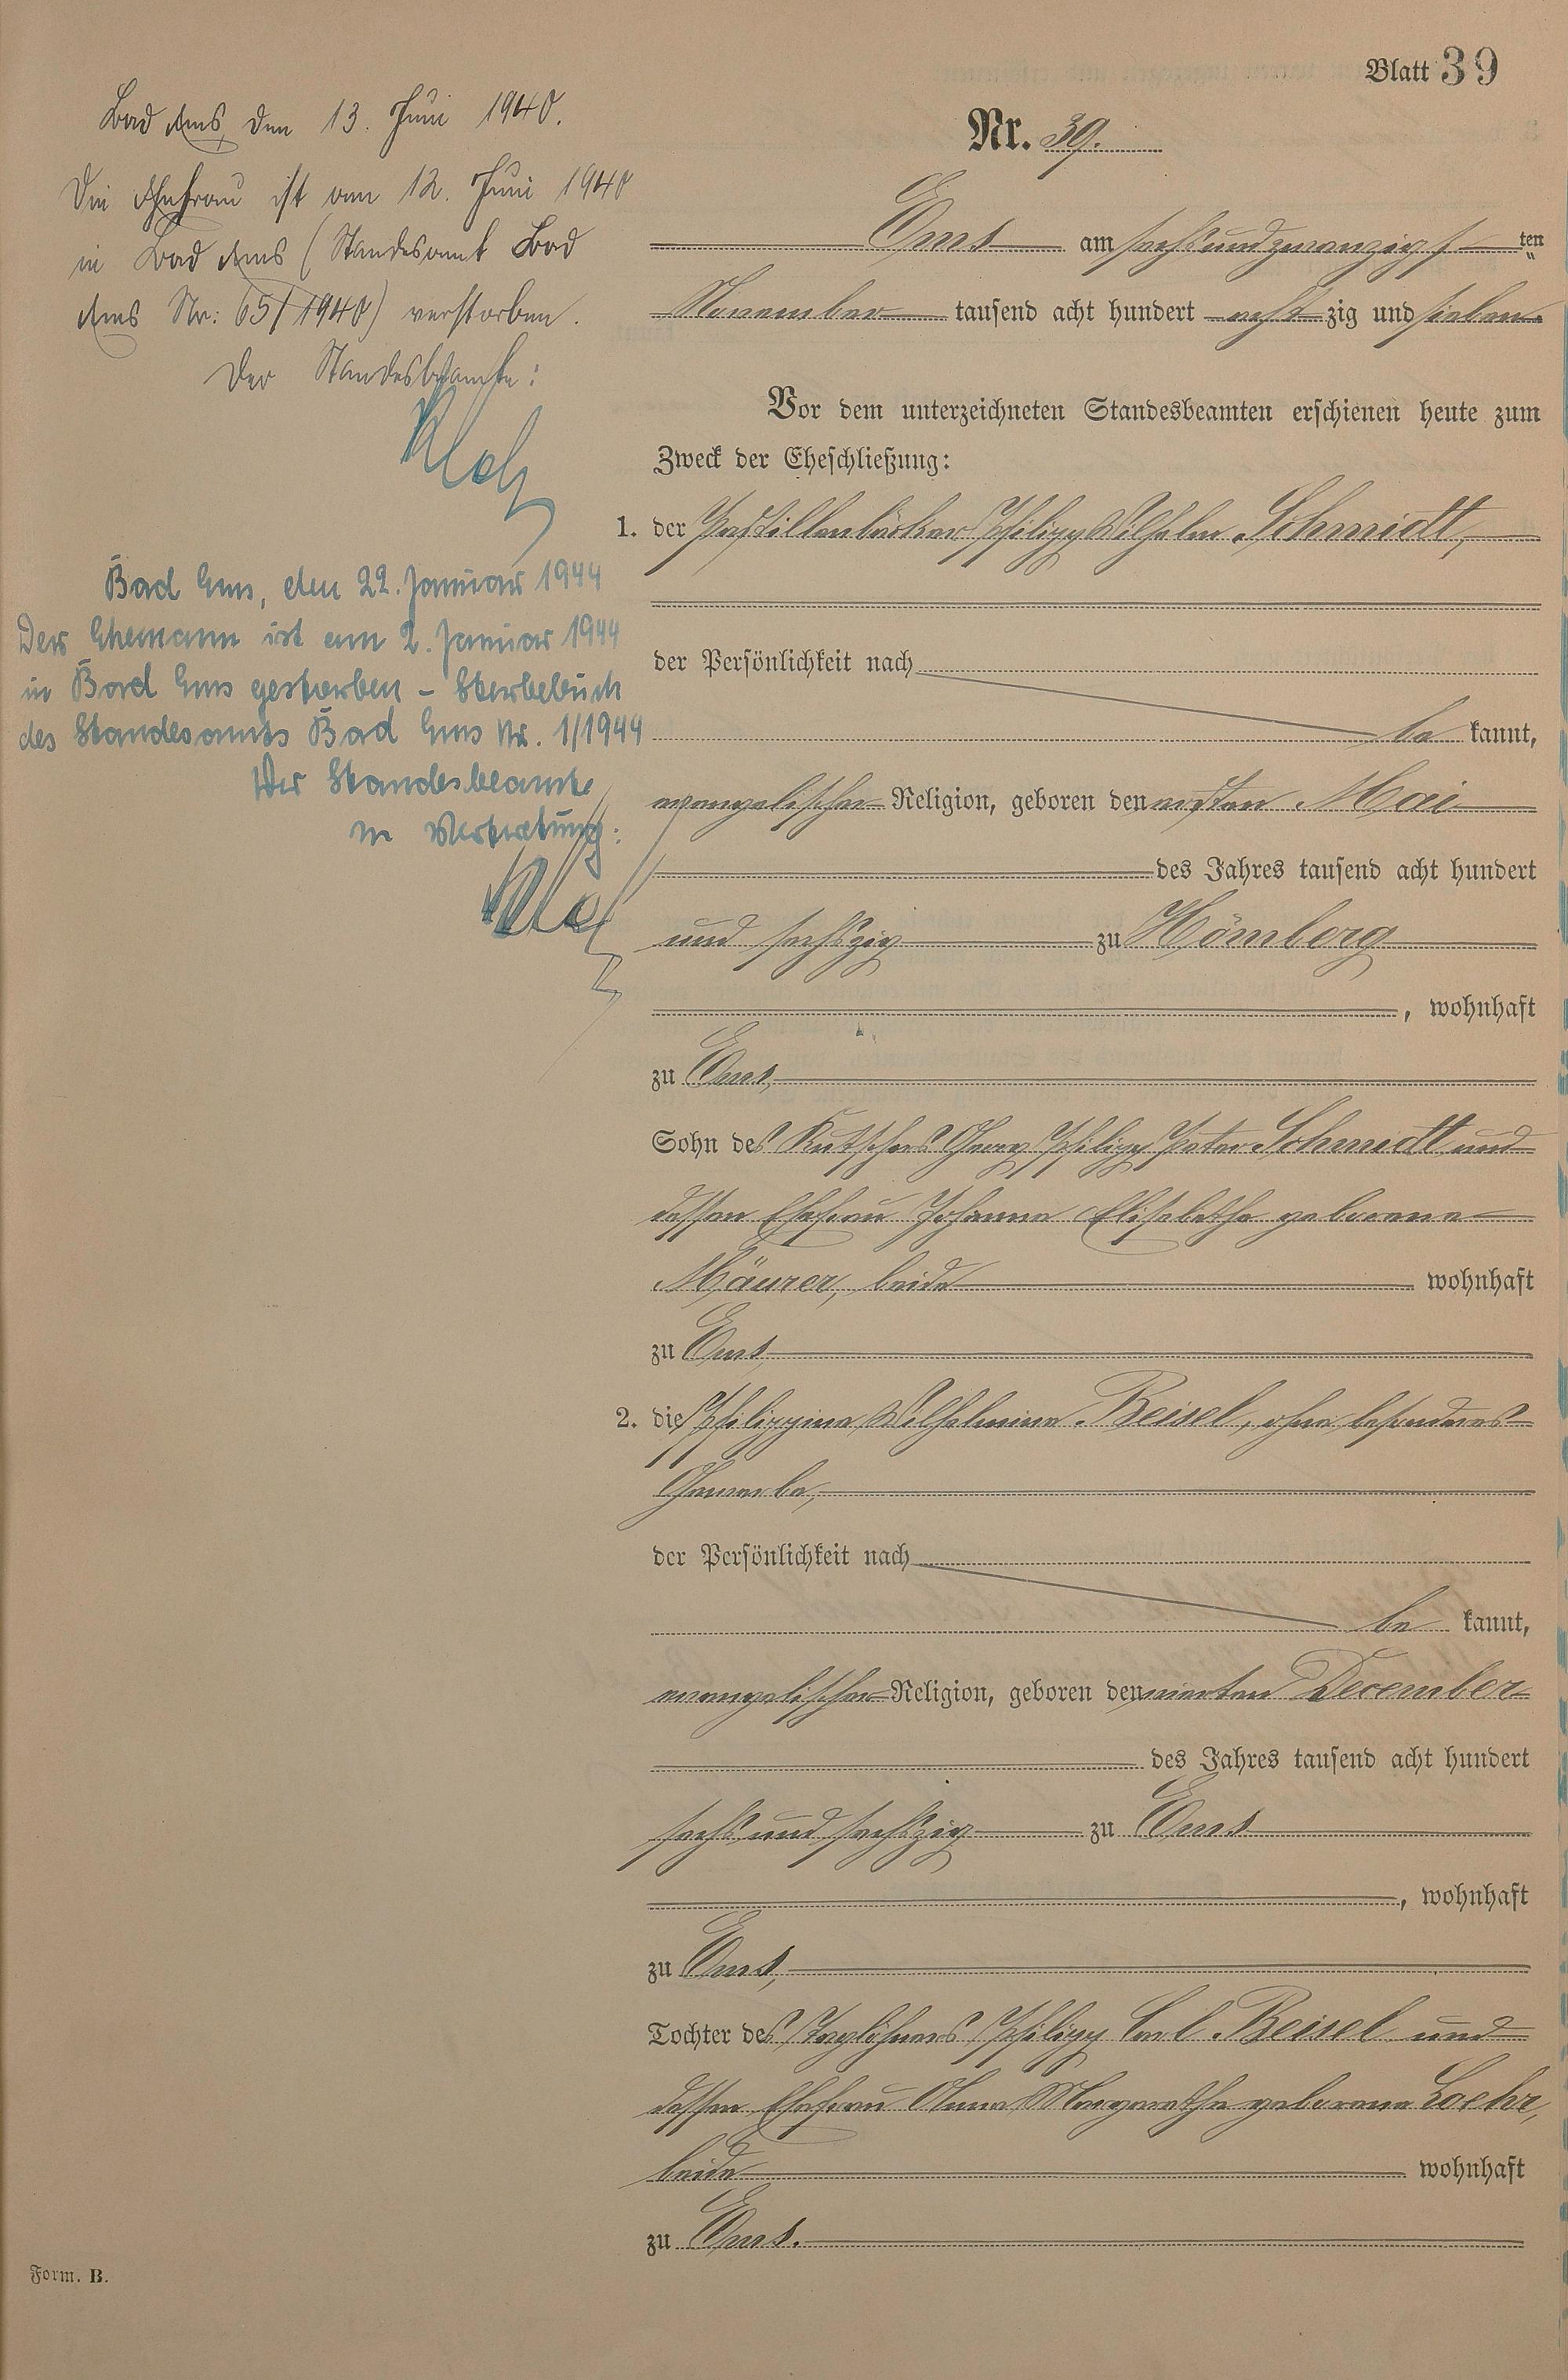 Blatt 39
Nr. 39.
Bad Ems, den 13. Juni 1940.
Die Ehefrau ist am 12. Juni 1940
in Bad Ems (Standesamt Bad
Ems Nr: 65/1940) verstorben.
Der Standesbeamte:
Bad Ems, den 22. Januar 1944
Der Ehemann ist am 2. Januar 1944
in Bad Ems gestorben – Sterbebuch
des Standesamts Bad Ems Nr. 1/1944
Der Standesbeamte
In Vertretung:
Ems am sechsundzwanzigsten
November tausend acht hundert achtzig und sieben
Vor dem unterzeichneten Standesbeamten erschienen heute zum
Zweck der Eheschließung:
1. der Pastillenbäcker Philipp Wilhelm Schmidt,
der Persönlichkeit nach
bekannt,
evangelischer Religion, geboren den ersten Mai
des Jahres tausend acht hundert
und sechszig zu Hömberg
, wohnhaft
zu Ems,
Sohn des Kutschers Georg Philipp Peter Schmidt und
dessen Ehefrau Johanna Elisabetha geborene
Mäurer, beide wohnhaft
zu Ems
2. die Philippine Wilhelmine Beisel, ohne besonderes
Gewerbe,
der Persönlichkeit nach
bekannt,
evangelischer Religion, geboren den vierten December
des Jahres tausend acht hundert
sechs und sechszig zu Ems
, wohnhaft
zu Ems,
Tochter des Taglöhners Philipp Carl Beisel und
dessen Ehefrau Anna Margarethe geborene Loehr,
beide wohnhaft
zu Ems.
Form. B.